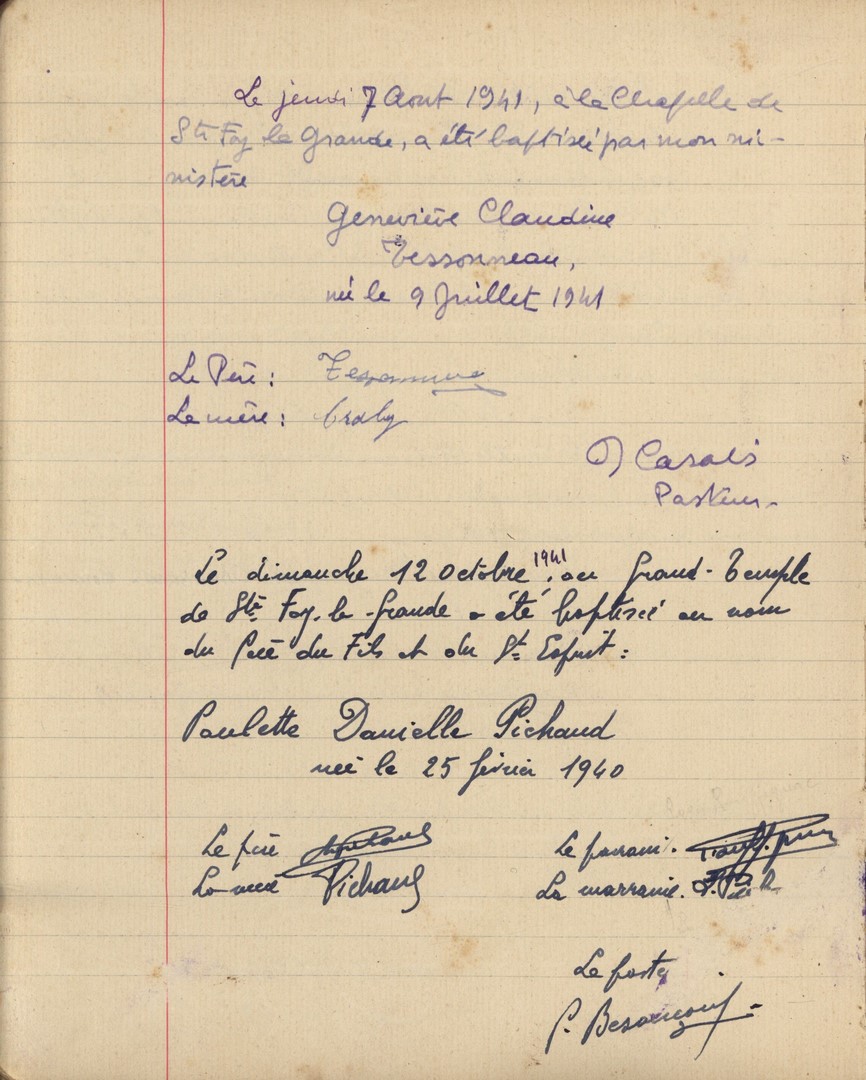 Le jeudi 7 Aout 1941, à la Chapelle de
Ste Foy la Grande, a été baptisée par mon mi-
nistère
Geneviève Claudine
Tessonneau,
née le 9 Juillet 1941
Le Père :
La mère :
Casalis
Pasteur
Le dimanche 12 octobre 1941, au Grand-Temple
de Ste Foy-la-Grande a été baptisée au nom
du Père du Fils et du St Esprit :
Paulette Danielle Pichaud
née le 25 février 1940
Le père
La mère Pichaud
Le parrain.
La marraine.
Le pasteur
P. Besançon